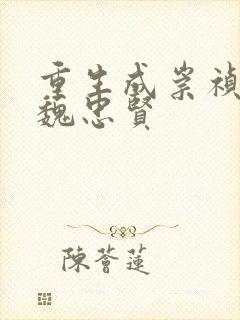 重生成崇禎
魏忠賢
陳薈蓮